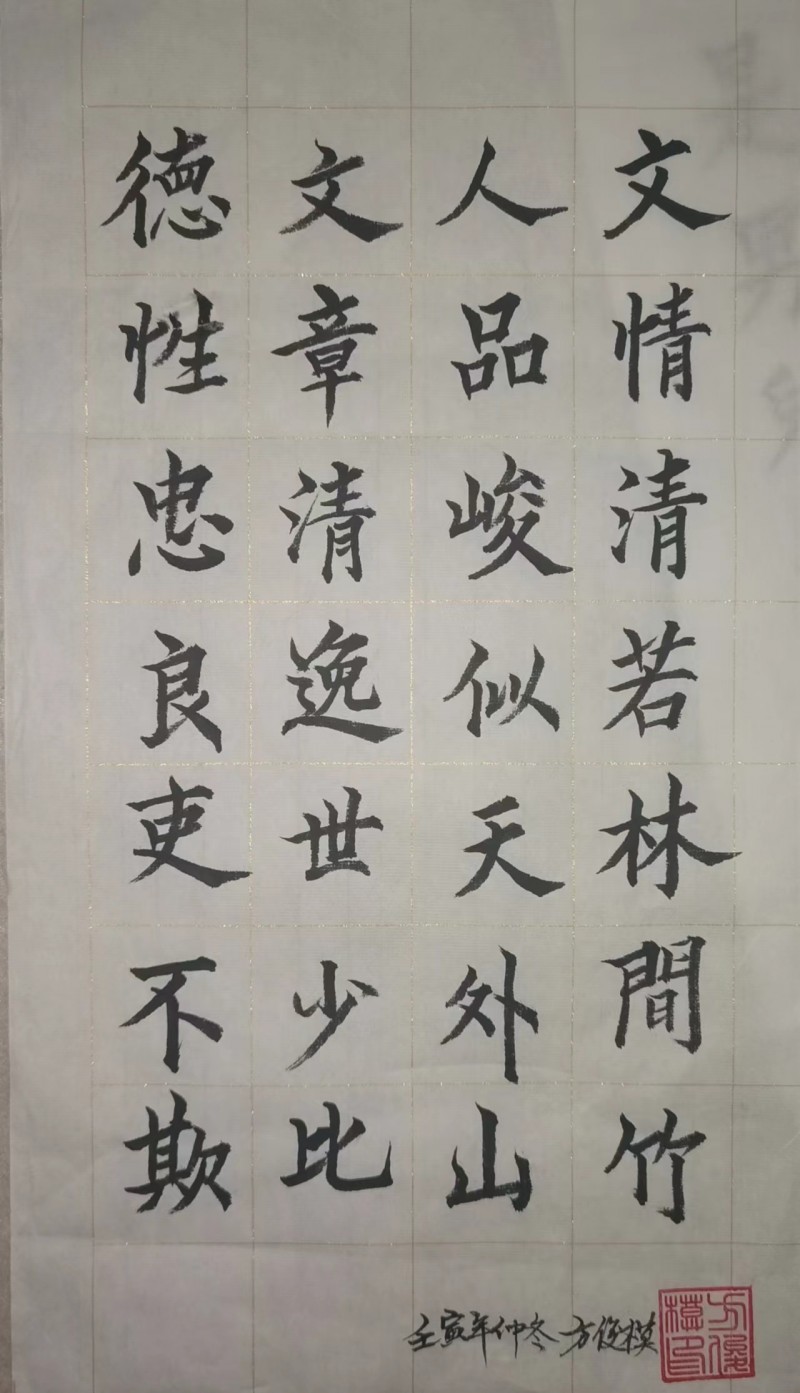 文情清若林間竹
人品峻似天外山
文章清逸世少比
德性忠良吏不欺
壬寅年仲冬 方俊模
方俊模印